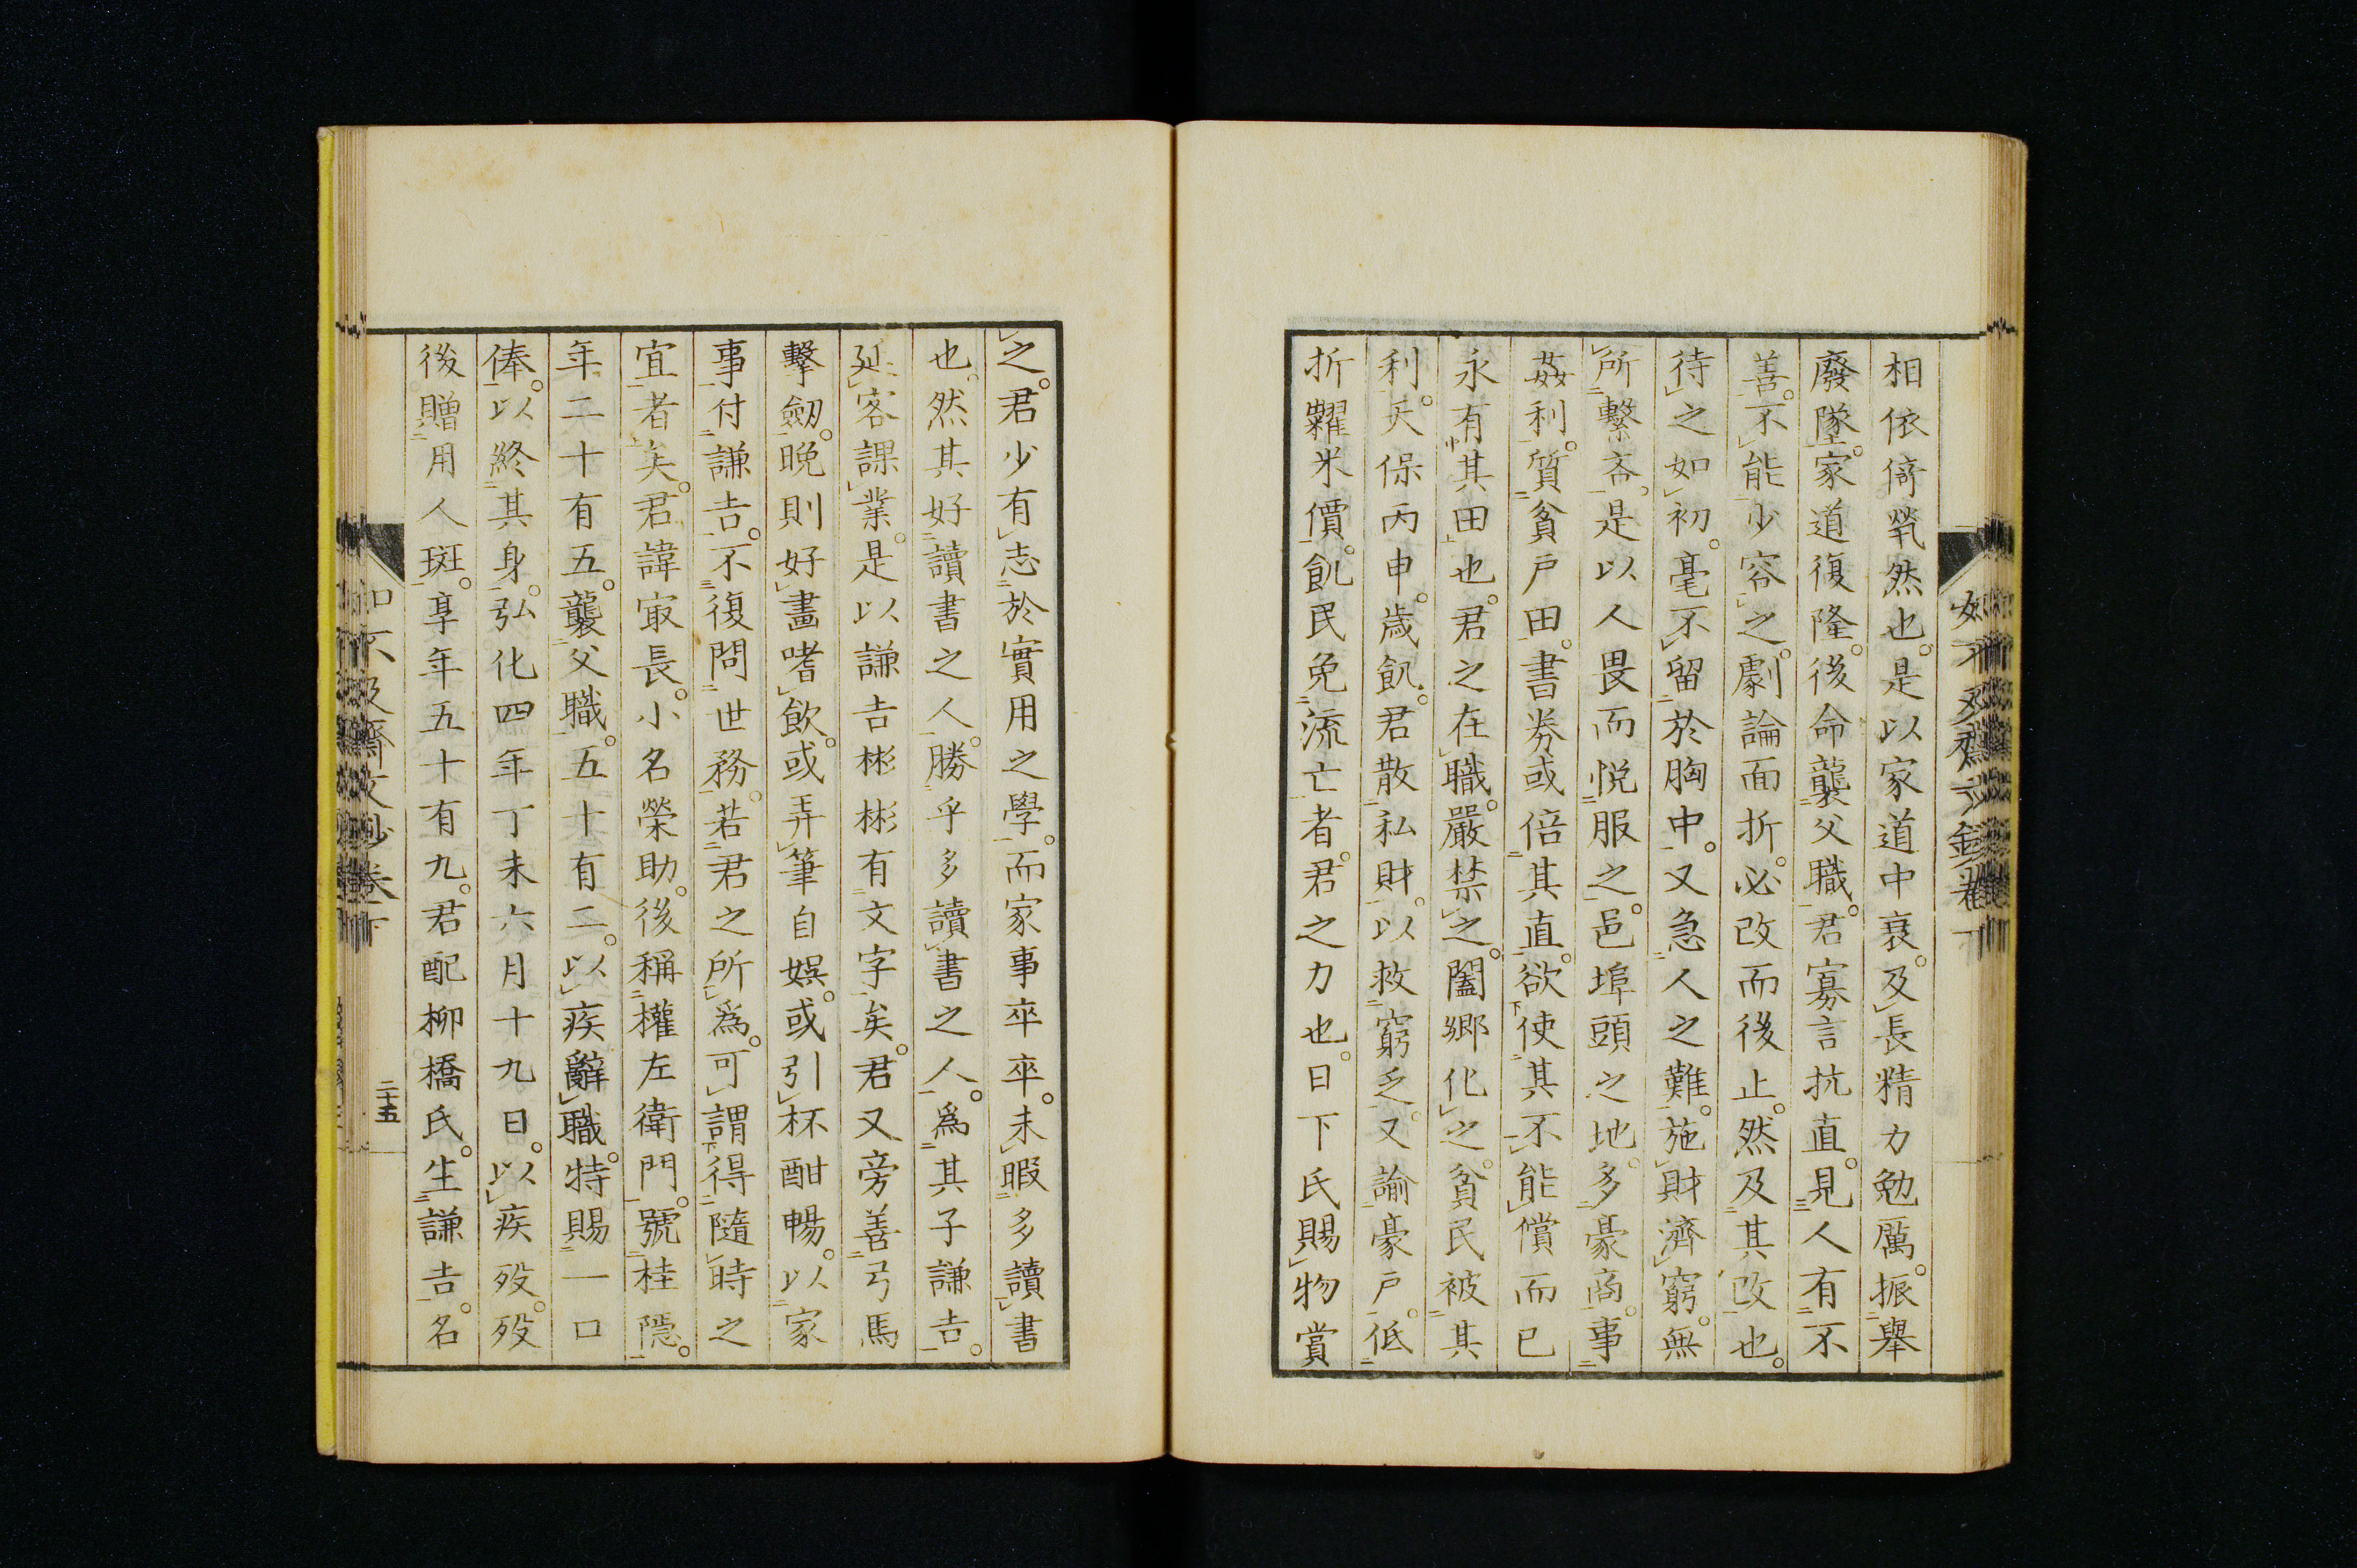 相依倚煢然也。是以家道中衰。及長精力勉厲。振擧
廢墜。家道復隆。後命襲父職。君寡言抗直。見人有不
善。不能少容之。劇論面折。必改而後止。然及其改也。
待之如初。毫不留於胸中。又急人之難。施財濟窮。無
所繫吝。是以人畏而悦服之。邑埠頭之地。多豪商。事
姦利。質貧戶田。書券或倍其直。欲使其不能償而已
永有其田也。君之在職。嚴禁之。闔鄉化之。貧民被其
利。天保丙申。歳飢。君散私財。以救窮乏。又諭豪戶。低
折糶米價。飢民免流亡者。君之力也。日下氏賜物賞
之。君少有志於實用之學。而家事卒卒。未暇多讀書
也。然其好讀書之人。勝乎多讀書之人。爲其子謙吉。
延客課業。是以謙吉彬彬有文字矣。君又旁善弓馬
擊劒。晩則好畫嗜飲。或弄筆自娯。或引杯酣暢。以家
事付謙吉。不復問世務。若君之所爲。可謂得隨時之
宜者矣。君諱宬長。小名榮助。後稱權左衛門。號桂隱。
年二十有五。襲父職。五十有二。以疾辭職。特賜一口
俸。以終其身。弘化四年丁未六月十九日。以疾歿。歿
後贈用人班。享年五十有九。君配柳橋氏。生謙吉。名
如不及齋文鈔卷下
二十五